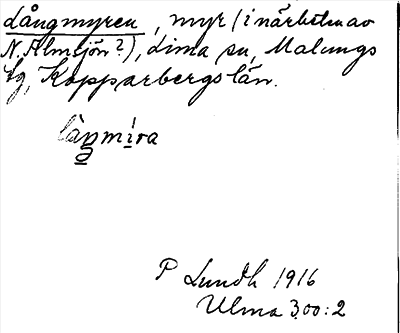 Långmyren, myr (i närheten av
N. Älmsjön?), Lima sn, Malungs
tg, Kopparbergs län.
P Lundh 1916
Ulma 300:2